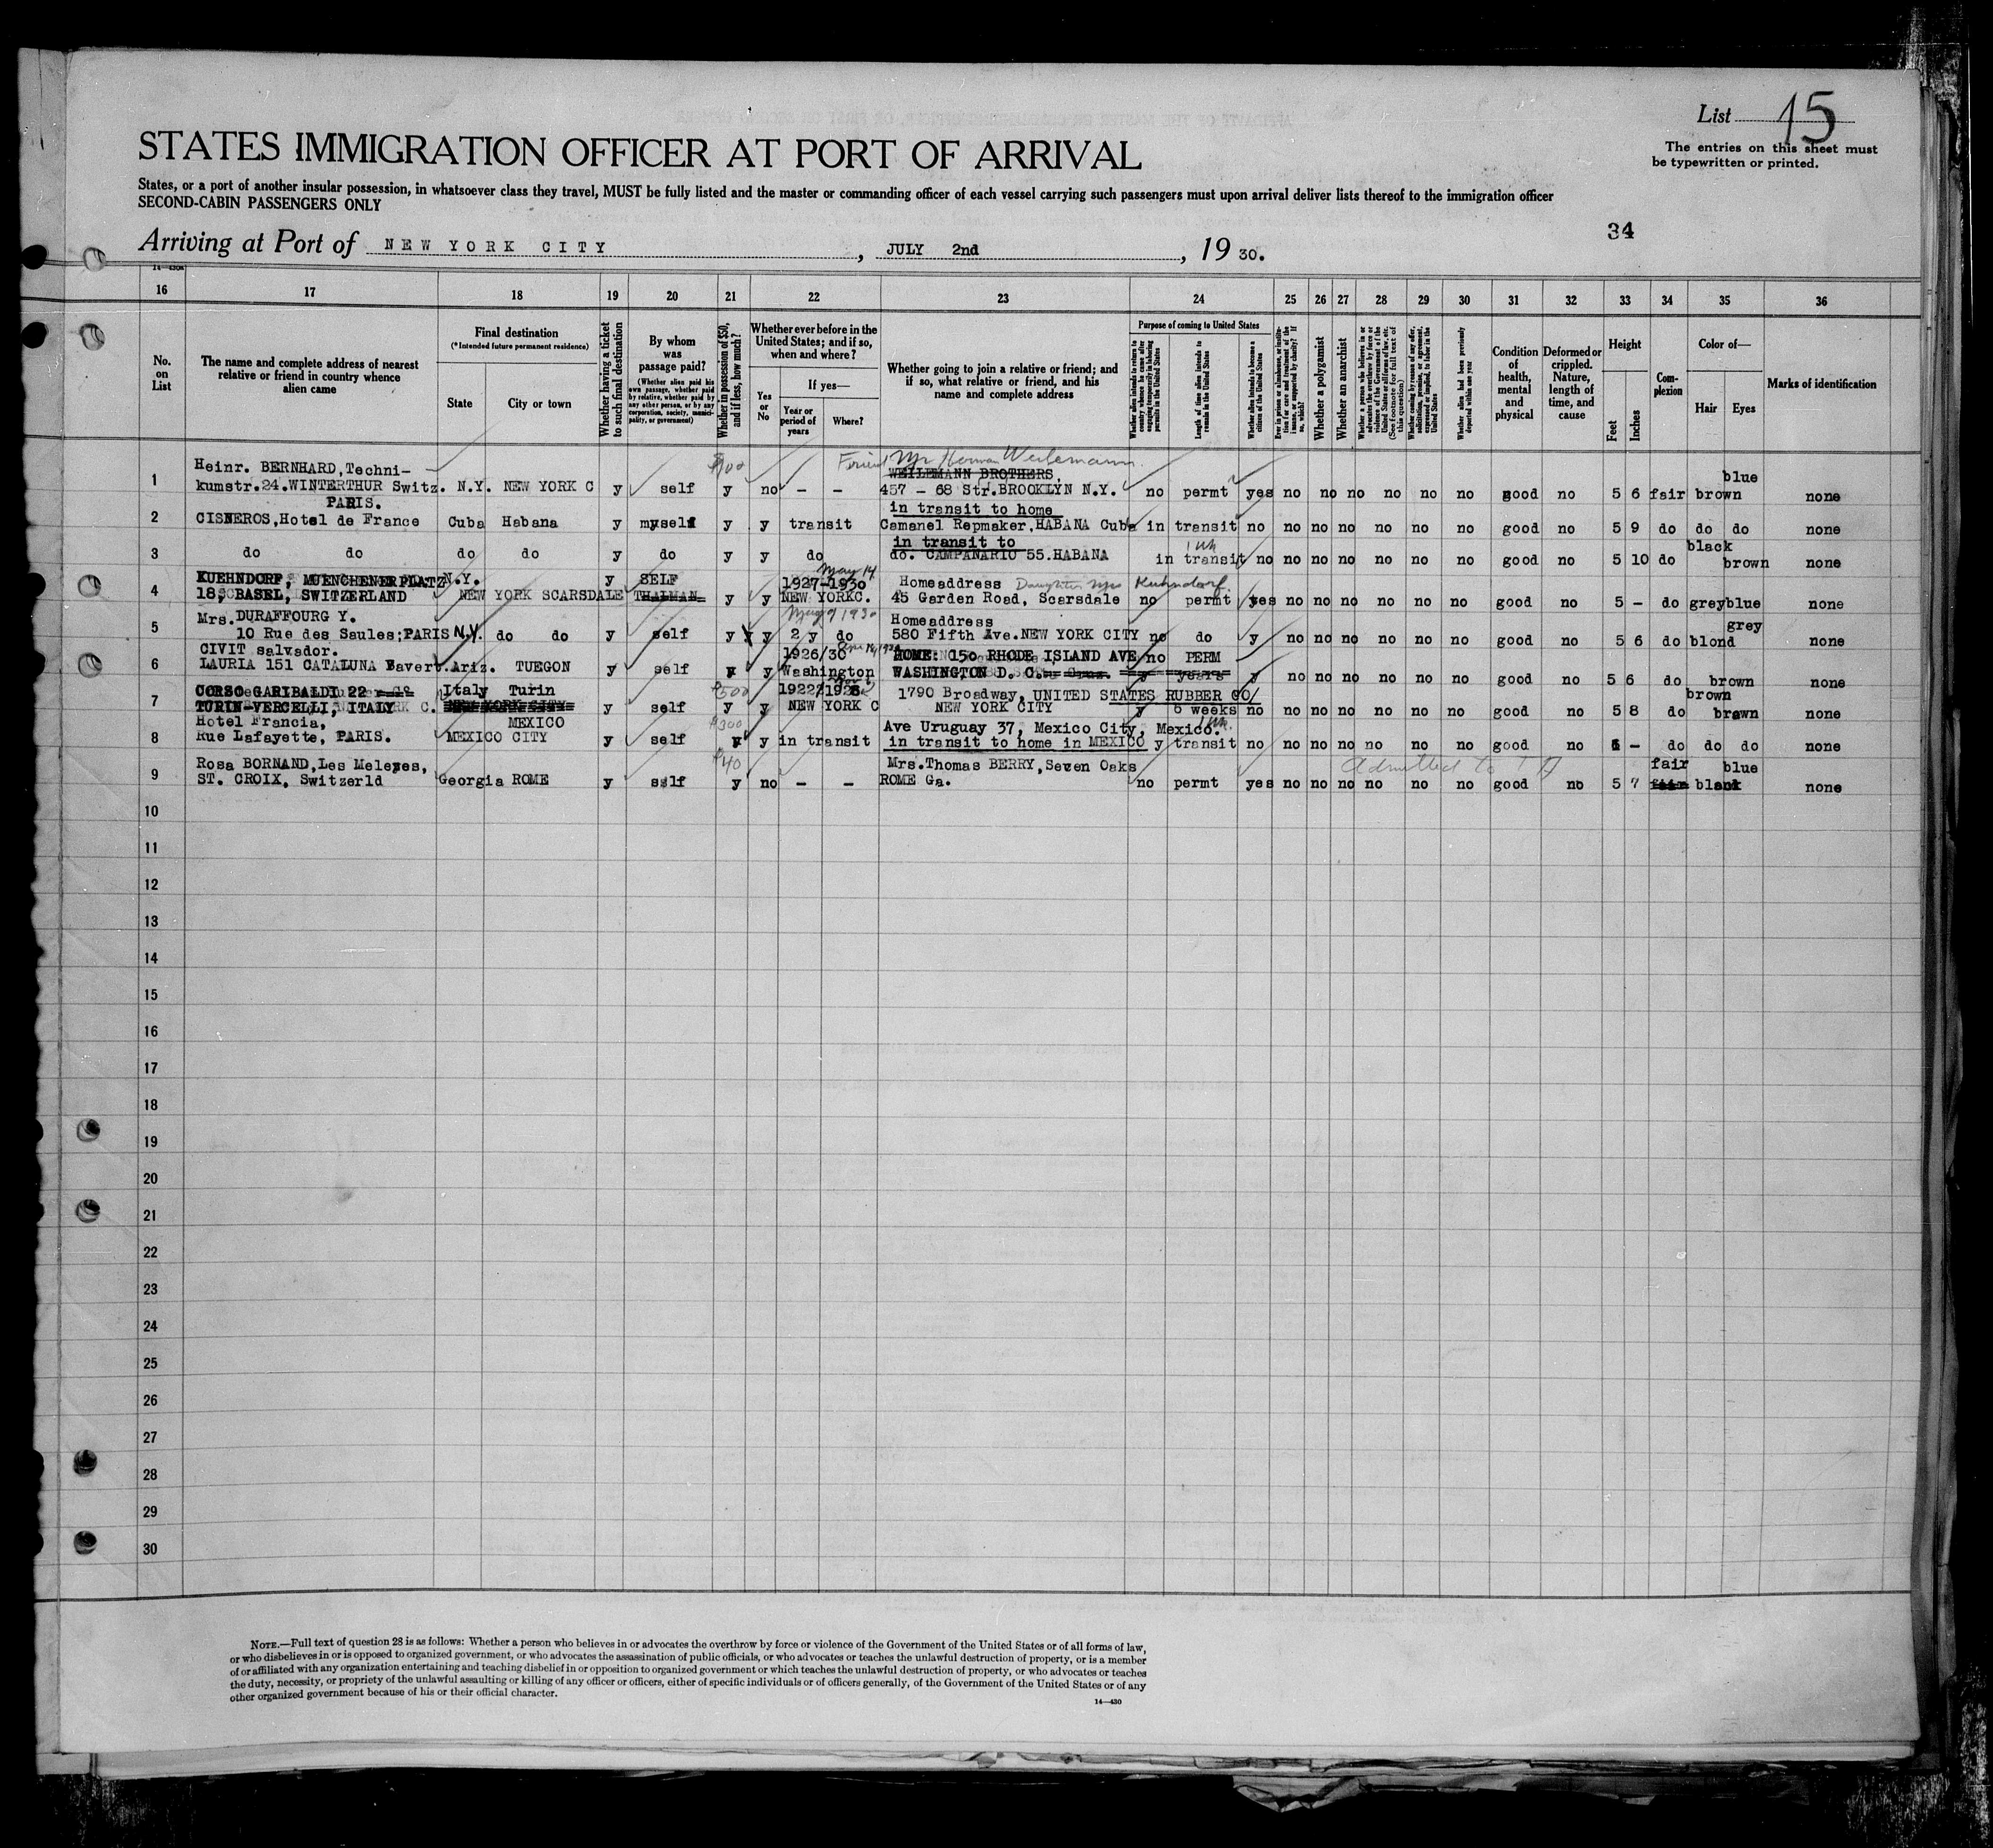 List 15
The entries on this sheet must
be typewritten or printed.
STATES IMMIGRATION OFFICER AT PORT OF ARRIVAL
States, or a port of another insular possession, in whatsoever class they travel, MUST be fully listed and the master or commanding officer of each vessel carrying such passengers must upon arrival deliver lists thereof to the immigration officer
SECOND-CABIN PASSENGERS ONLY
34
Arriving at Port of NEW YORK CITY, JULY 2nd, 19 30.
14—430A
16 17 18 19 20 21 22 23 24 25 26 27 28 29 30 31 32 33 34 35 36
No. on List
The name and complete address of nearest relative or friend in country whence alien came
Final destination
(*Intended future permanent residence)
State
City or town
Whether having a ticket to such final destination
By whom was passage paid?
(Whether alien paid his own passage, whether paid by relative, whether paid by any other person, or by any corporation, society, municipality, or government)
Whether in possession of $50, and if less, how much?
Whether ever before in the United States; and if so, when and where?
Yes or No
If yes—
Year or period of years
Where?
Whether going to join a relative or friend; and if so, what relative or friend, and his name and complete address
Purpose of coming to United States
Whether alien intends to return to country whence he came after engaging temporarily in laboring pursuits in the United States
Length of time alien intends to remain in the United States
Whether alien intends to become a citizen of the United States
Ever in prison or almshouse, or institution for care and treatment of the insane, or supported by charity? If so, which?
Whether a polygamist
Whether an anarchist
Whether a person who believes in or advocates the overthrow by force or violence of the Government of the United States or all forms of law, etc. (See footnote for full text of this question)
Whether coming by reason of any offer, solicitation, promise, or agreement, expressed or implied, to labor in the United States
Whether alien had been previously deported within one year
Condition of health, mental and physical
Deformed or crippled. Nature, length of time, and cause
Height
Feet
Inches
Complexion
Color of—
Hair
Eyes
Marks of identification
Friend Mr Herman Weilemann
1 Heinr. BERNHARD, Techni- $100 WEILEMANN BROTHERS, blue
kumstr.24.WINTERTHUR Switz. N.Y. NEW YORK C y self y no – – 457 – 68 Str.BROOKLYN N.Y. no permt yes no no no no no no good no 5 6 fair brown none
PARIS. in transit to home
2 CISNEROS, Hotel de France Cuba Habana y myself y y transit Camanel Repmaker, HABANA Cuba in transit no no no no no no no good no 5 9 do do do none
in transit to black
3 do do do do y do y y do do. CAMPANARIO 55.HABANA in transit no no no no no no no good no 5 10 do brown none
May 14
4 KUEHNDORF, MUENCHENERPLATZ N.Y. y SELF 1927-1930 Homeaddress Daughter Mrs Kuhndorf
18, BASEL, SWITZERLAND NEW YORK SCARSDALE THALMAN y y NEW YORKC. 45 Garden Road, Scarsdale no permt yes no no no no no no good no 5 – do grey blue none
Mrs. DURAFFOURG Y. May 7 1930 Homeaddress grey
5 10 Rue des Saules; PARIS N.Y. do do y self y y 2 y do 580 Fifth Ave. NEW YORK CITY no do y no no no no no no good no 5 6 do blond none
CIVIT salvador. 1926/30 HOME: 150 RHODE ISLAND AVE no PERM
6 LAURIA 151 CATALUNA Ariz. TUEGON y self y y Washington WASHINGTON D. C. y years y no no no no no no good no 5 6 do brown none
CORSO GARIBALDI 22 Italy Turin $500 1790 Broadway, UNITED STATES RUBBER CO/ brown
7 TURIN-VERCELLI, ITALY NEW YORK CITY y self y y NEW YORK C NEW YORK CITY y 6 weeks no no no no no no no good no 5 8 do brown none
Hotel Francia. MEXICO $300 Ave Uruguay 37, Mexico City, Mexico.
8 Rue Lafayette, PARIS. MEXICO CITY y self y y in transit in transit to home in MEXICO y transit no no no no no no no good no – do do do none
Rosa BORNAND, Les Meleyes, $40 Mrs. Thomas BERRY, Seven Oaks Admitted to fair blue
9 ST. CROIX, Switzerld Georgia ROME y self y no – – ROME Ga. no permt yes no no no no no no good no 5 7 fair black none
10
11
12
13
14
15
16
17
18
19
20
21
22
23
24
25
26
27
28
29
30
NOTE.—Full text of question 28 is as follows: Whether a person who believes in or advocates the overthrow by force or violence of the Government of the United States or of all forms of law,
or who disbelieves in or is opposed to organized government, or who advocates the assassination of public officials, or who advocates or teaches the unlawful destruction of property, or is a member
of or affiliated with any organization entertaining and teaching disbelief in or opposition to organized government or which teaches the unlawful destruction of property, or who advocates or teaches
the duty, necessity, or propriety of the unlawful assaulting or killing of any officer or officers, either of specific individuals or of officers generally, of the Government of the United States or of any
other organized government because of his or their official character.
14—430